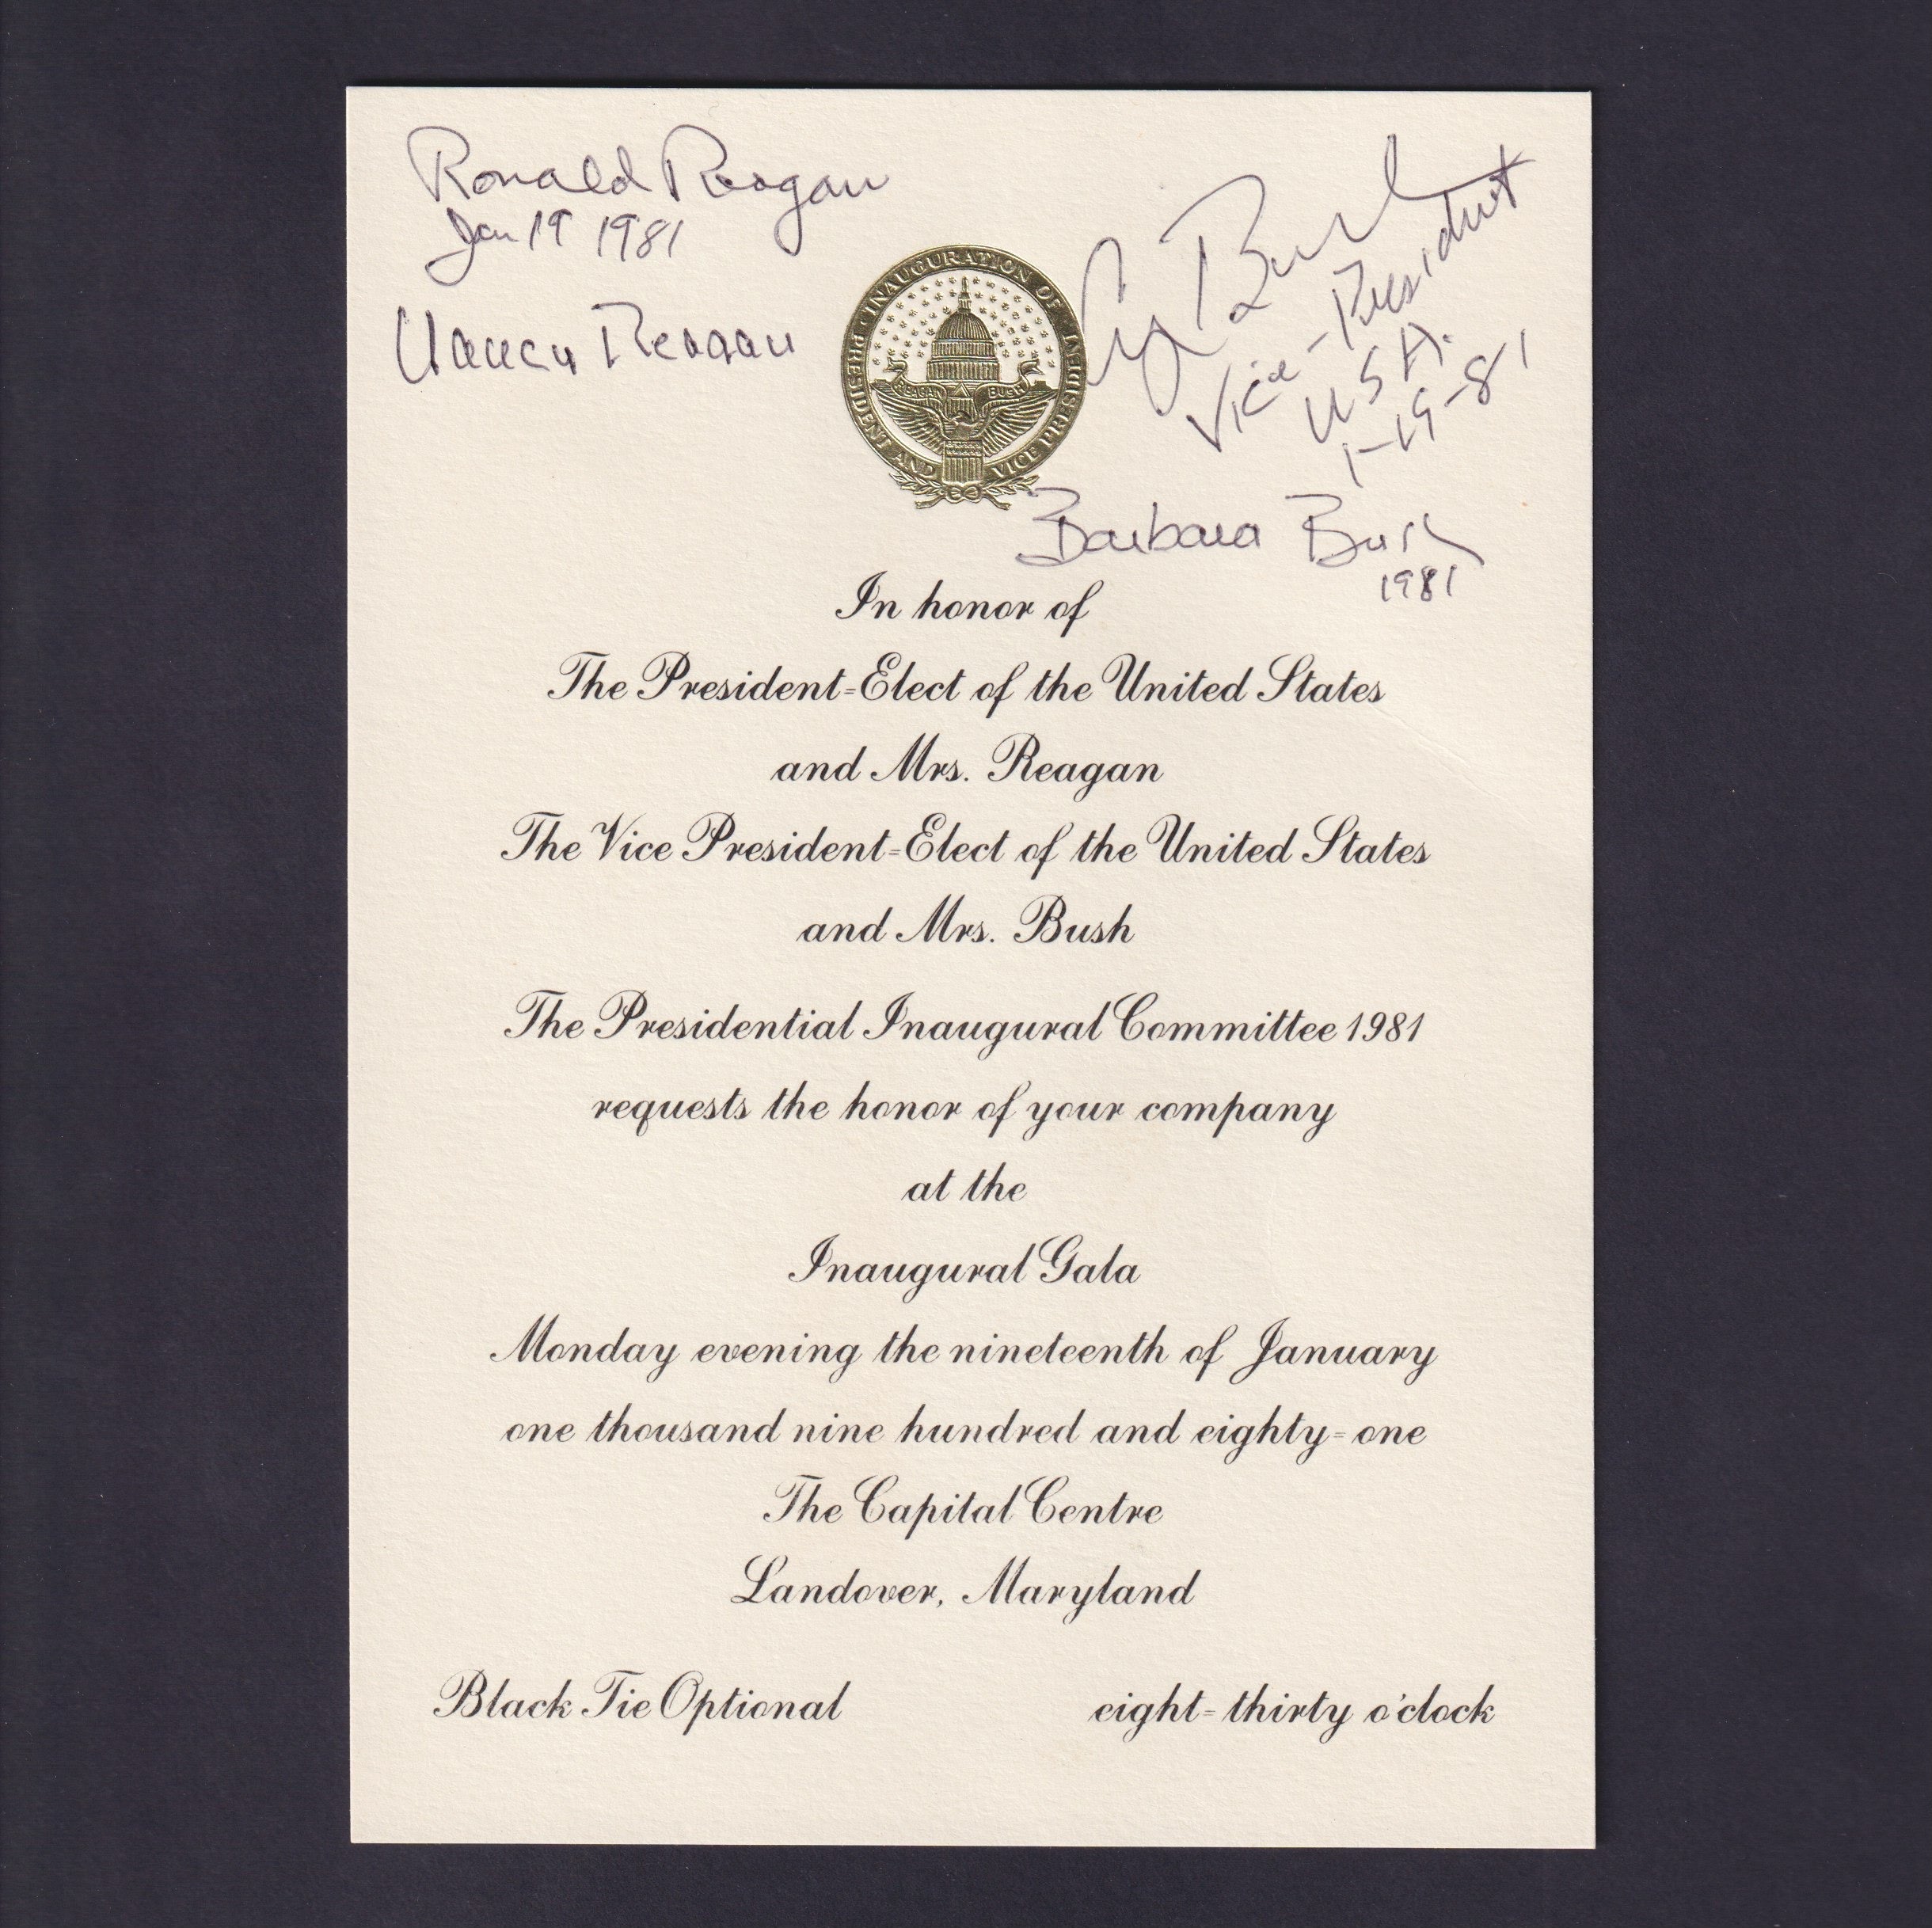 Ronald Reagan
Jan 19 1981
Nancy Reagan
G Bush
Vice-President
USA.
1-19-81
Barbara Bush
1981
INAUGURATION OF PRESIDENT AND VICE PRESIDENT
REAGAN BUSH
In honor of
The President-Elect of the United States
and Mrs. Reagan
The Vice President-Elect of the United States
and Mrs. Bush
The Presidential Inaugural Committee 1981
requests the honor of your company
at the
Inaugural Gala
Monday evening the nineteenth of January
one thousand nine hundred and eighty-one
The Capital Centre
Landover, Maryland
Black Tie Optional
eight-thirty o'clock